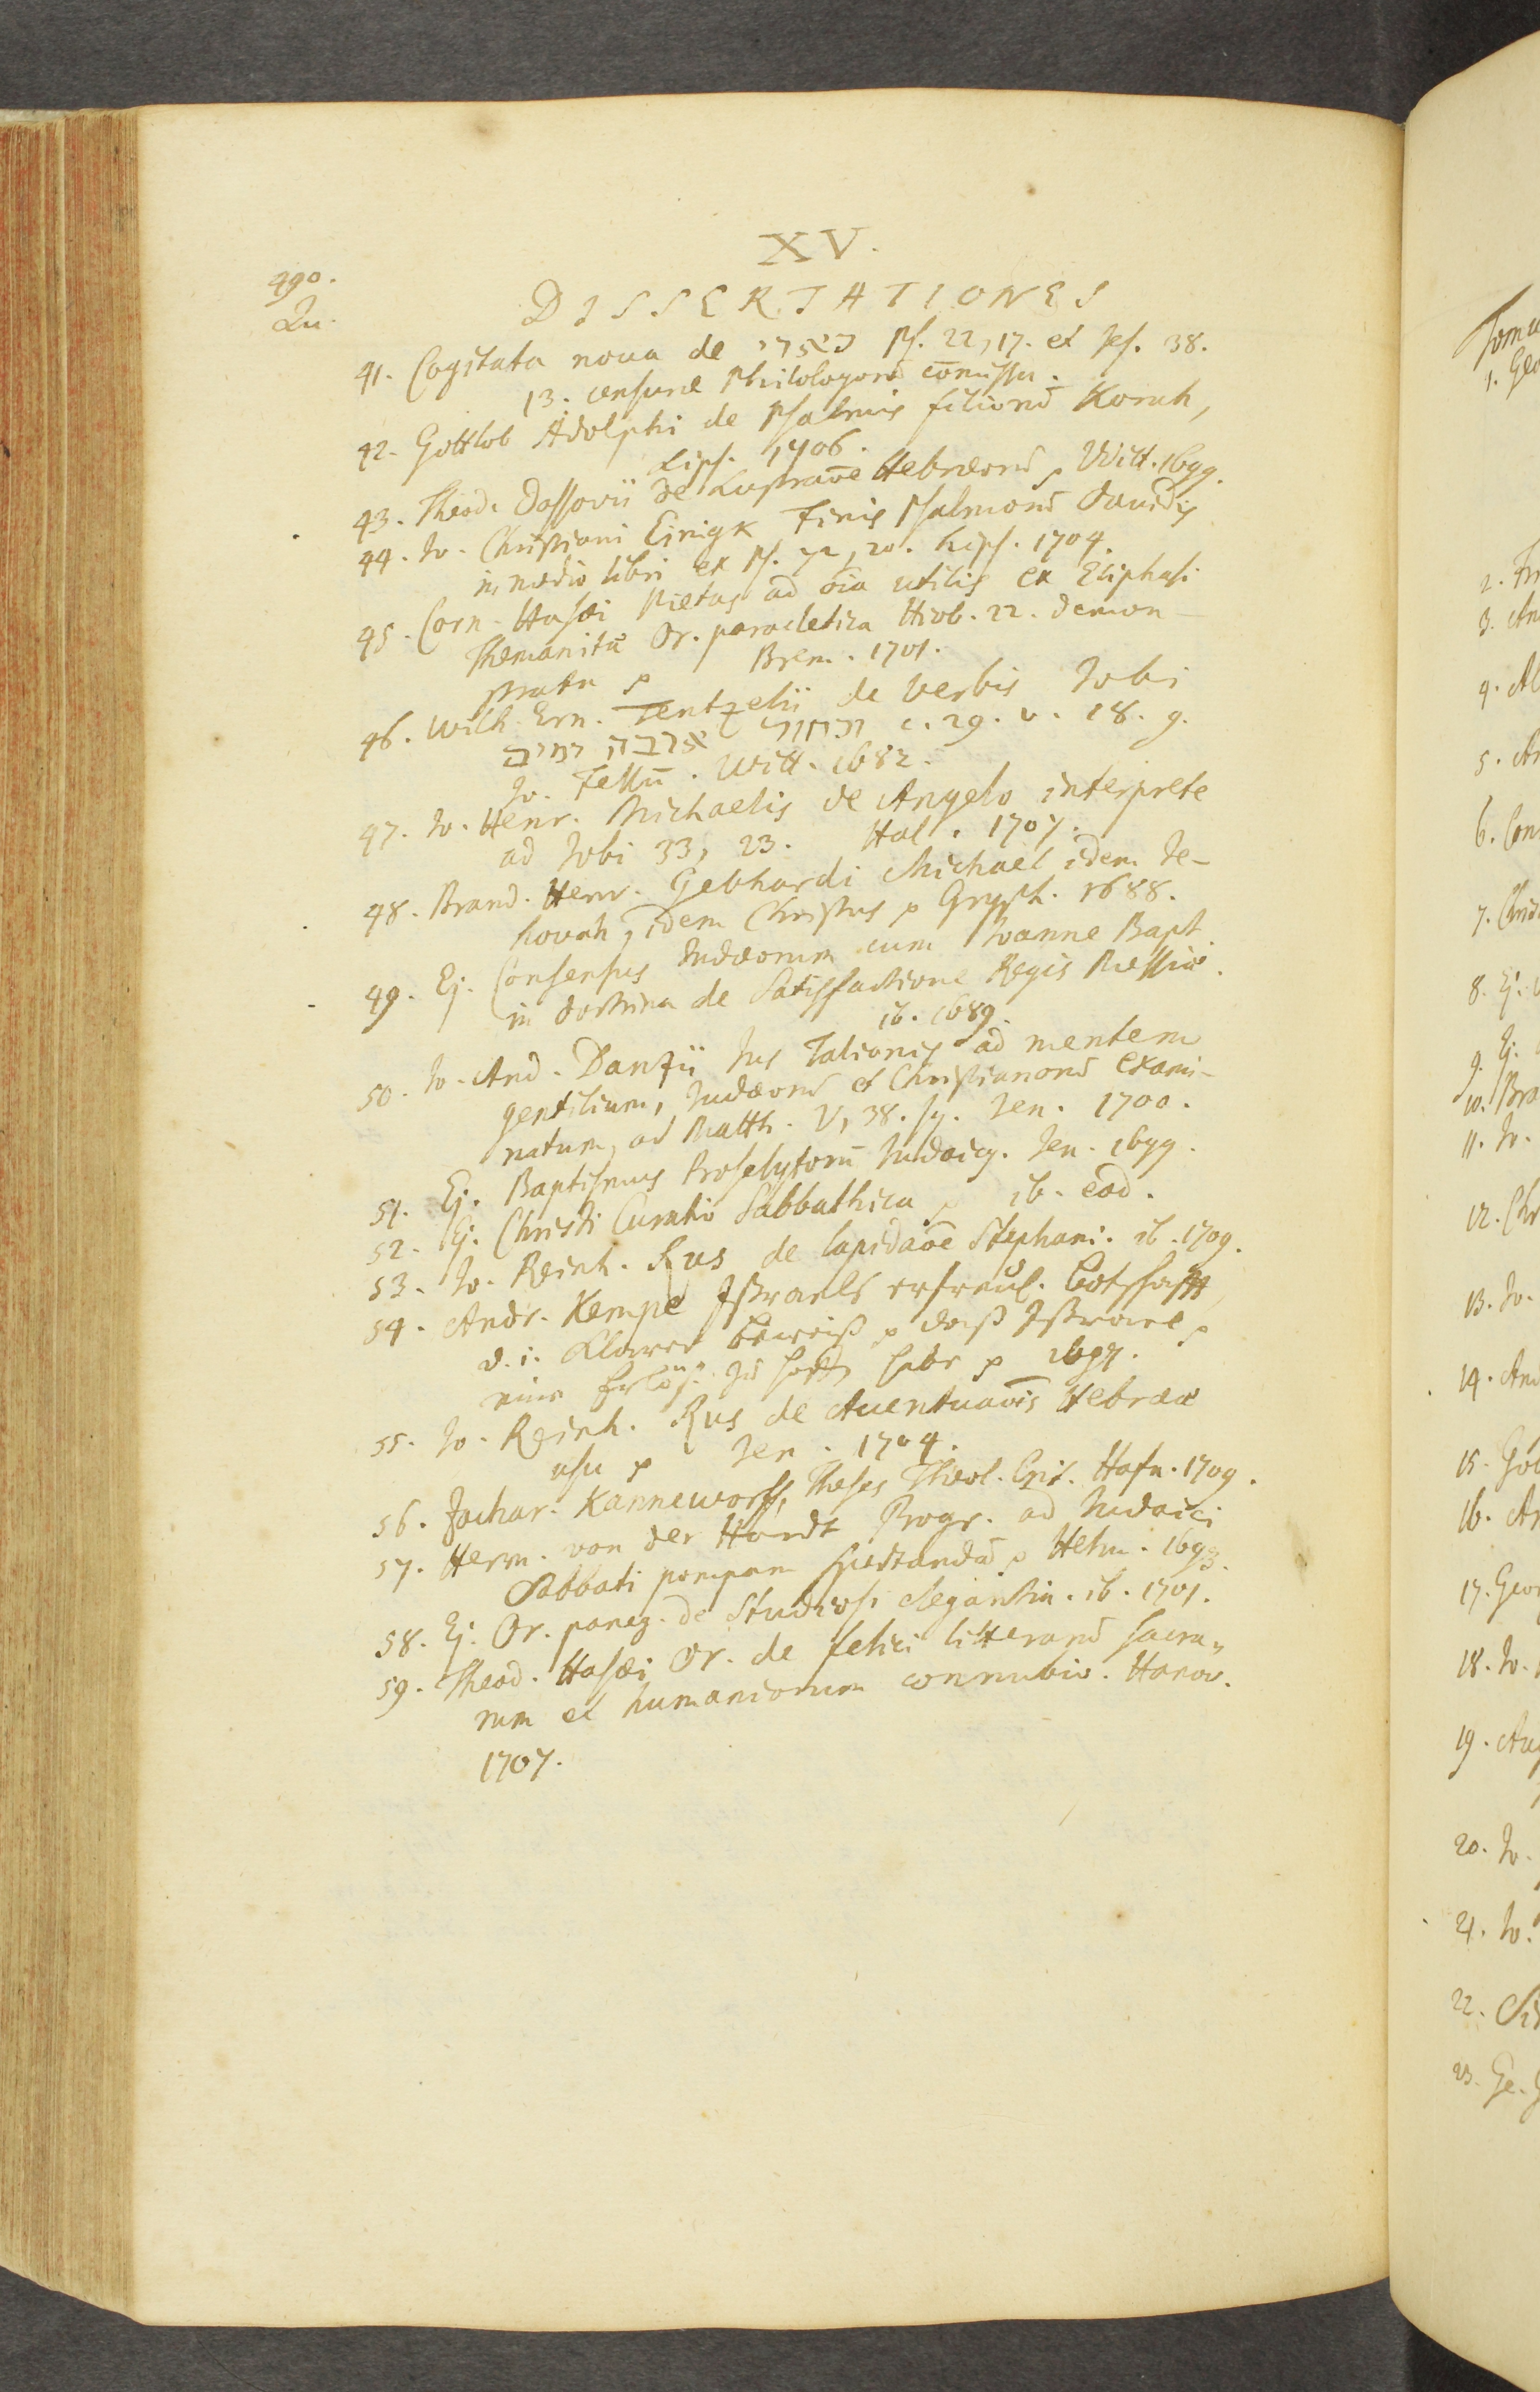 XV.
490.
Qu.
DISSERTATIONES
41. Cogitata noua de כארי Ps. 22, 17. et Jes. 38.
13. censurae Philologorū com̄issa.
42. Gottlob Adolphi de Psalmis filiorū Korah,
Lips. 1706.
43. Theod. Dassovii de Lustrao͞e Hebraeorū p Witt. 1699.
44. Jo. Christiani Einigk Finis Psalmorū Davidis
in medio libri ex Ps. 72, 20. Lips. 1704.
45. Corn. Hasaei Pietas ad oīa utilis ex Eliphasi
Themanitae Or. paracletica Hiob. 22. demon-
strata p Brem. 1701.
46. Wilh. Ern. Tentzelii de verbis Jobi
וכחול ארבה ימים c. 29. v. 18. g.
Jo. Fellū. Witt. 1682.
47. Jo. Henr. Michaelis de Angelo interprete
ad Jobi 33, 23. Hal. 1707.
48. Brand. Henr. Gebhardi Michael idem Je-
hovah, idem Christus p Gryph. 1688.
49. Ej. Consensus Judaeorum cum Joanne Bapt.
in doctrina de Satisfactione Regis Messiae.
ib. 1689.
50. Jo. And. Danzii Jus Talionis ad mentem
gentilium, Judaeorū et Christianorū exami-
natum, ad Matth. V, 38. sq. Jen. 1700.
51. Ej. Baptismus Proselytorū Judaicq. Jen. 1699.
52. Ej. Christi Curatio Sabbathica p ib. eod.
53. Jo. Reinh. Rus de lapidao͞e Stephani. ib. 1709.
54. Andr. Kempe Jßraels erfreul. Botschafft,
d. i. Klarer Beweiß p daß Jßrael p
eine Erlös. zu hoffē habe p 1697.
55. Jo. Reinh. Rus de Accentuaōis Hebraeae
usu p Jen. 1704.
56. Zachar. Kanneworff, Theses Theol. Crit. Hafn. 1709.
57. Herm. von der Hardt Progr. ad Judaici
Sabbati pompam spectandā p Helm. 1693.
58. Ej. Or. paneg. de Studiosi elegantia. ib. 1701.
59. Theod. Hasaei Or. de felici litterarū sacra-
rum et humaniorum connubio. Hanov.
1707.
Tomu
1. Geo
2. Fr
3. An
4. Al
5. An
6. Con
7. Chri
8. Ej.
9. Ej.
10. Bra
11. Jo.
12. Chr
13. Jo.
14. And
15. Got
16. An
17. Geor
18. Jo.
19. Aug
20. Jo.
21. Jo.
22. Si
23. Ge.